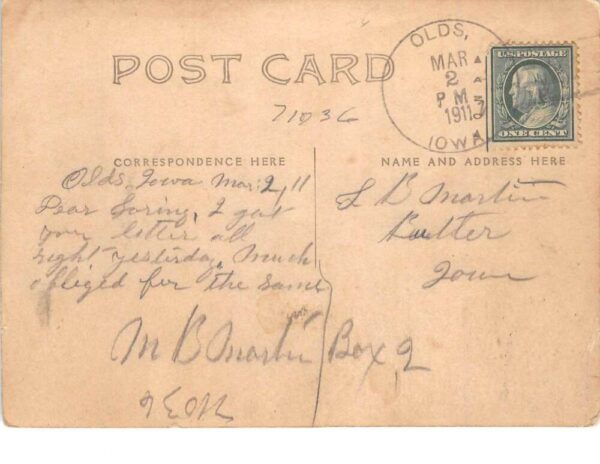 POST CARD
OLDS,
MAR
2
P M
1911
IOWA
U.S. POSTAGE
ONE CENT
71036
CORRESPONDENCE HERE
NAME AND ADDRESS HERE
Olds, Iowa Mar 2, 11
Dear Loring, I got
your letter all
right yesterday, Much
obliged for the same
M B Martin Box 2
L B Martin
Iowa